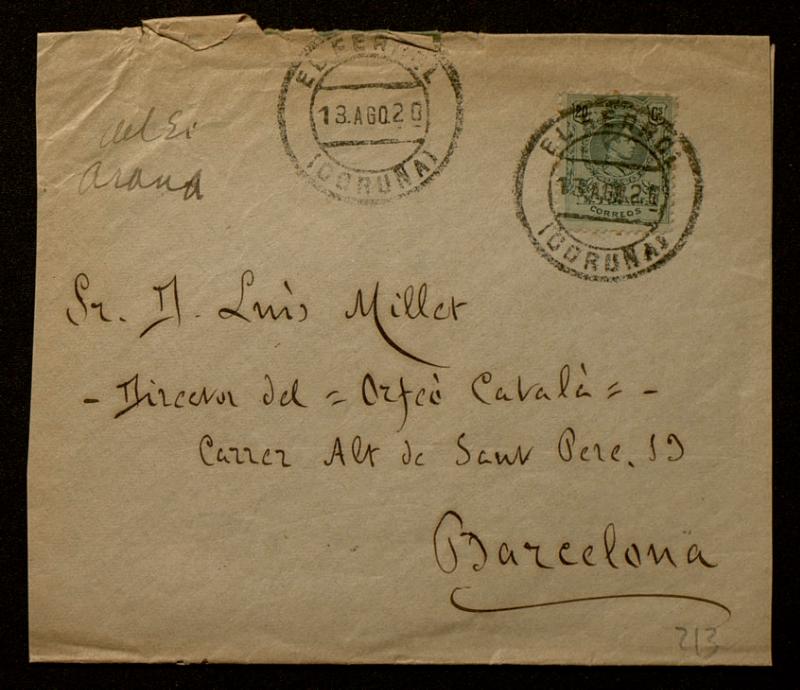 EL FERROL
13.AGO.20
(CORUÑA)
20 Cs
EL FERROL
13.AGO.20
CORREOS
(CORUÑA)
del Sr
Arana
Sr. D. Luìs Millet
- Director del = Orfeò Català = -
Carrer Alt de Sant Pere, 13
Barcelona
213